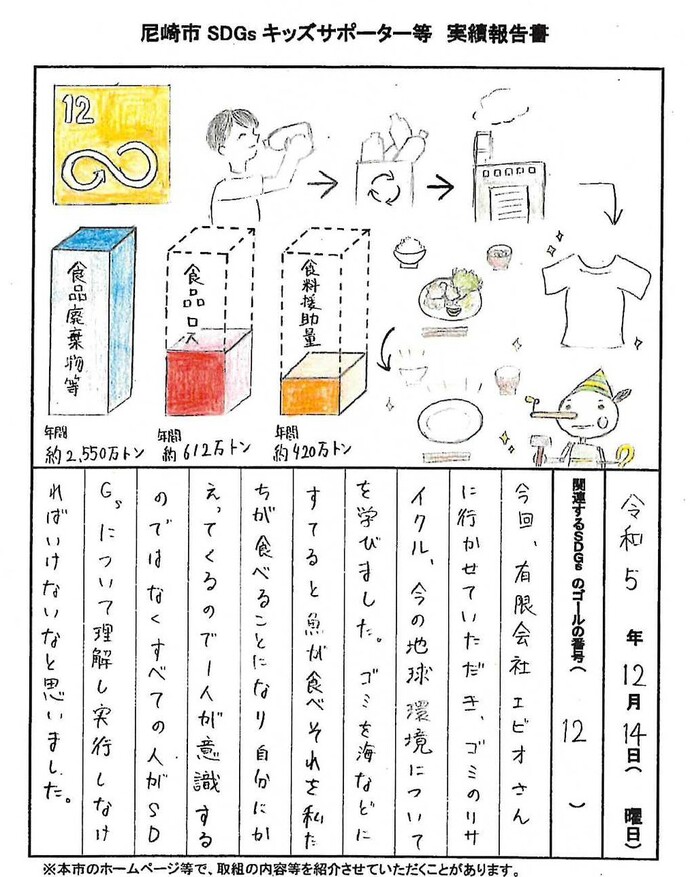 尼崎市 SDGs キッズサポーター等 実績報告書
12
食品廃棄物等
年間
約2,550万トン
食品ロス
年間
約612万トン
食料援助量
年間
約420万トン
令和5年12月14日(　曜日)
関連するSDGsのゴールの番号(　12　)
今回、有限会社エビオさん
に行かせていただき、ゴミのリサ
イクル、今の地球環境について
を学びました。ゴミを海などに
すてると魚が食べそれを私た
ちが食べることになり自分にか
えってくるので1人が意識する
のではなくすべての人がSD
Gsについて理解し実行しなけ
ればいけないなと思いました。
※本市のホームページ等で、取組の内容等を紹介させていただくことがあります。